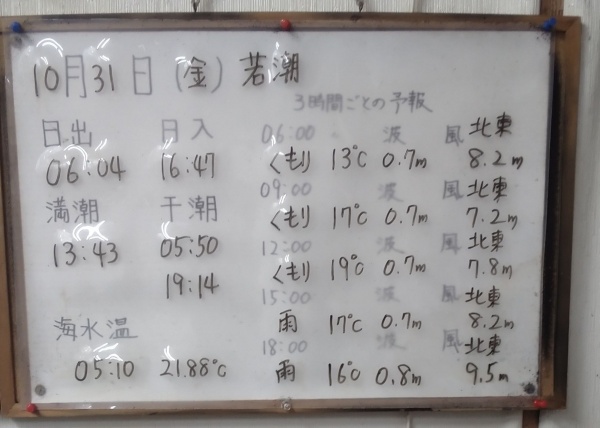 10月31日 (金) 若潮
3時間ごとの予報
日出 日入
06:04 16:47
満潮 干潮
13:43 05:50
19:14
海水温
05:10 21.88°C
06:00 波 風 北東
くもり 13°C 0.7m 8.2m
09:00 波 風 北東
くもり 17°C 0.7m 7.2m
12:00 波 風 北東
くもり 19°C 0.7m 7.8m
15:00 波 風 北東
雨 17°C 0.7m 8.2m
18:00 波 風 北東
雨 16°C 0.8m 9.5m